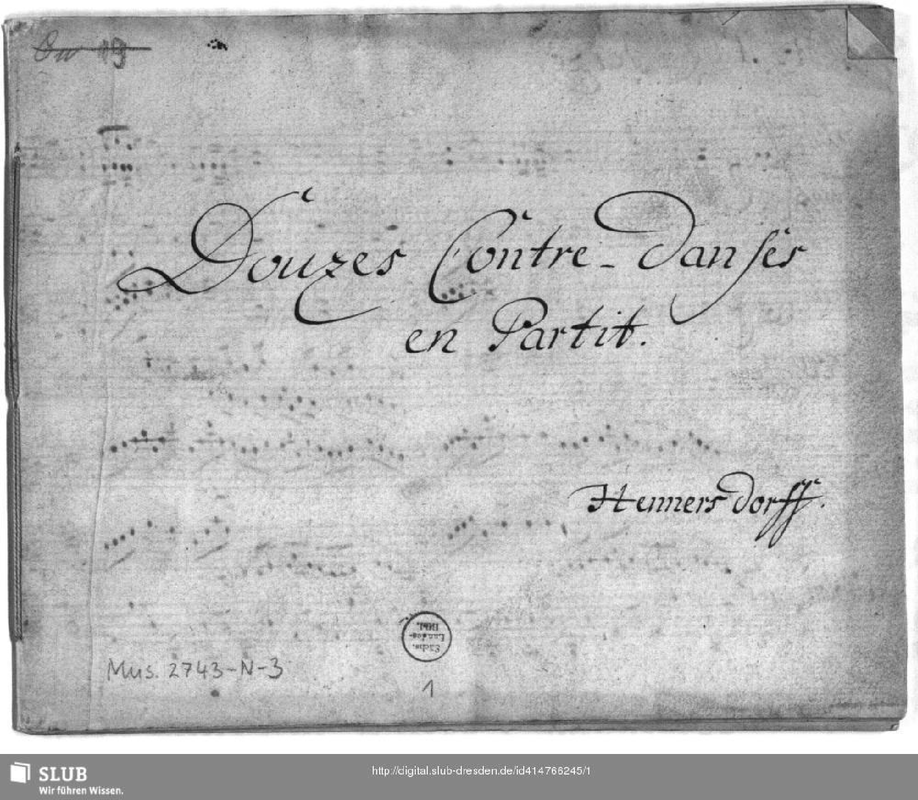 Douzes Contre-Danses
en Partit.
Hennersdorff.
Sächs.
Landes-
Bibl.
Mus. 2743-N-3
1
SLUB
Wir führen Wissen.
http://digital.slub-dresden.de/id414766245/1